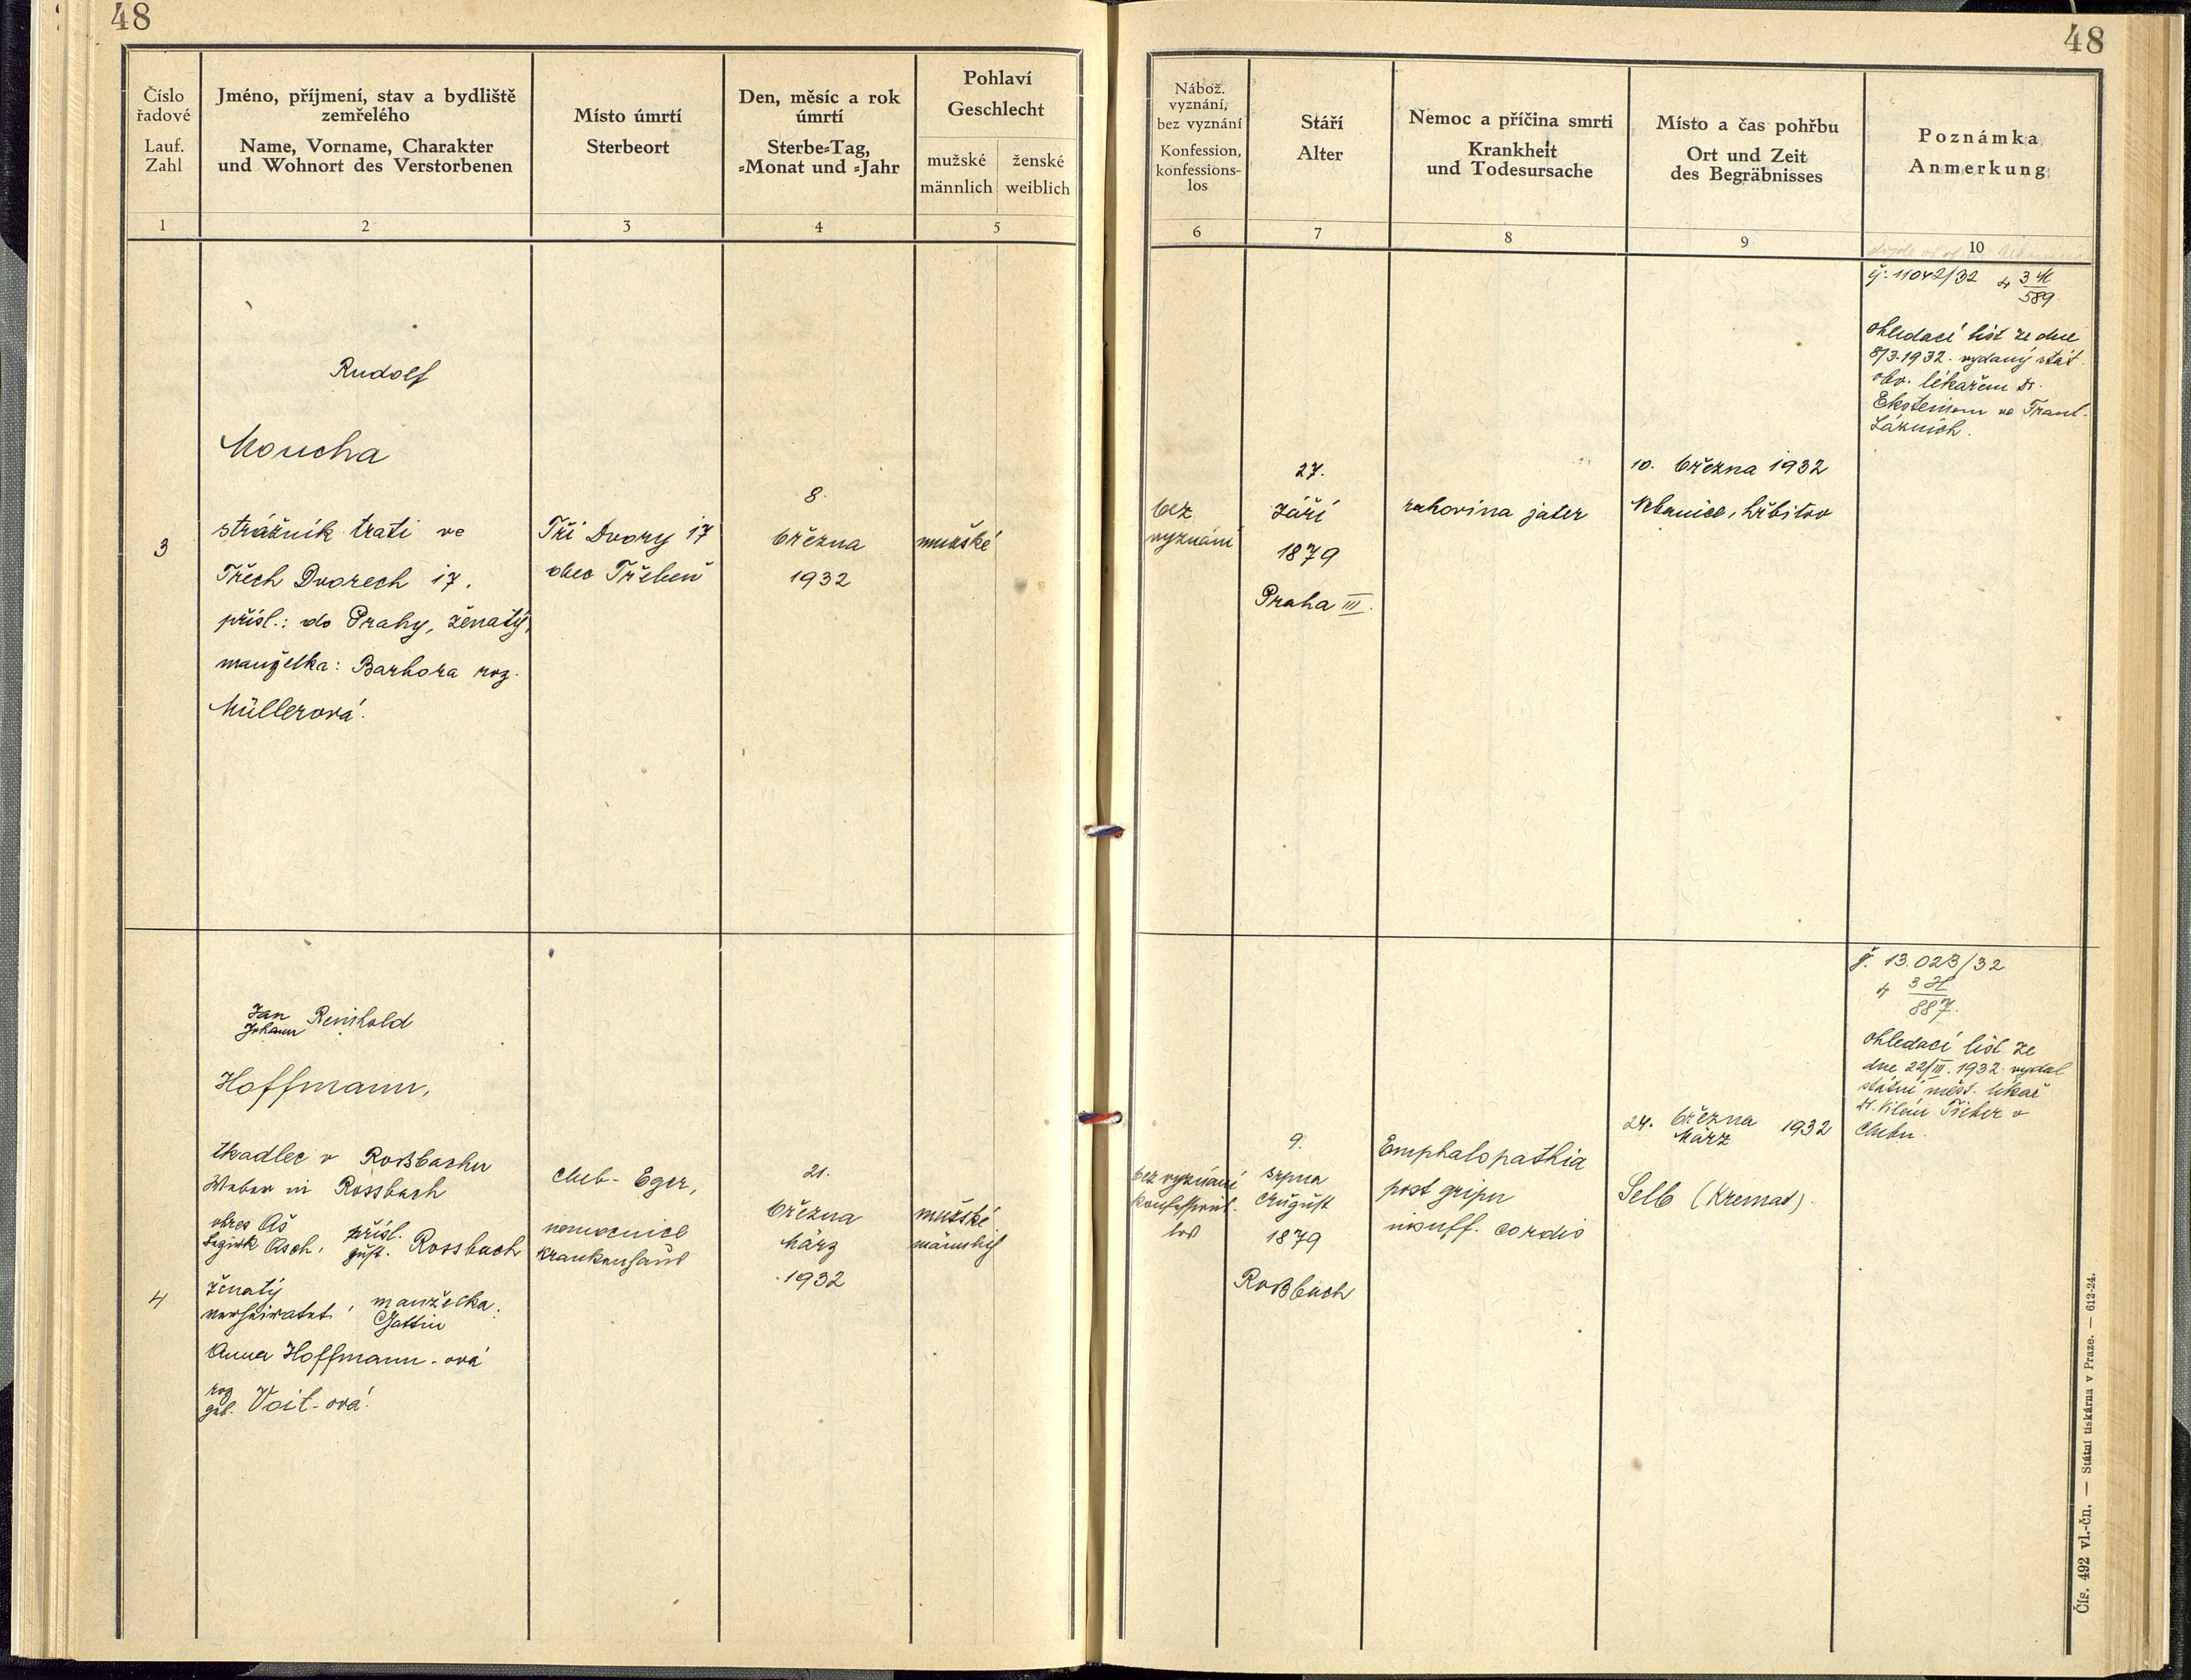 48
48
Číslo
řadové
Lauf.
Zahl
Jméno, příjmení, stav a bydliště
zemřelého
Name, Vorname, Charakter
und Wohnort des Verstorbenen
Místo úmrtí
Sterbeort
Den, měsíc a rok
úmrtí
Sterbe-Tag,
-Monat und -Jahr
Pohlaví
Geschlecht
mužské
männlich
ženské
weiblich
Nábož.
vyznání,
bez vyznání
Konfession,
konfessions-
los
Stáří
Alter
Nemoc a příčina smrti
Krankheit
und Todesursache
Místo a čas pohřbu
Ort und Zeit
des Begräbnisses
Poznámka
Anmerkung
1
2
3
4
5
6
7
8
9
10
3
Rudolf
Moucha
strážník trati ve
Třech Dvorech 17.
přísl.: do Prahy, ženatý,
manželka: Barbora roz.
Müllerová.
Tři Dvory 17
obec Třebeň
8.
března
1932
mužské
bez
vyznání
27.
Září
1879
Praha III.
rakovina jater
10. března 1932
Nebanice, hřbitov
č: 11042/32 4 3 M
589.
ohledací list ze dne
8/3.1932. vydaný stát.
obv. lékařem Dr.
Eksteinem ve Frant.
Lázních.
4
Jan
Johann Reinhold
Hoffmann,
tkadlec v Roßbachu
Weber in Rossbach
okres Aš
Bezirk Asch, přísl.
zust. Rossbach
ženatý
verheiratet, manželka:
Gattin
Anna Hoffmann-ová
roz
geb. Voit-ová.
Cheb - Eger,
nemocnice
Krankenhaus
21.
března
März
1932
mužské
männlich
bez vyznání
konfessions-
los
9.
srpna
August
1879
Roßbach
Emphalopathia
post gripu
insuff. cordis
24. března
März 1932
Selb (Kremat).
č. 13.023/32
4 3 H
887.
ohledací list ze
dne 22/III. 1932 vydal
státní měst. lékař
Dr. Vilém Fischer v
Chebu.
Čís. 492 vl.-čn. — Státní tiskárna v Praze. — 612-24.